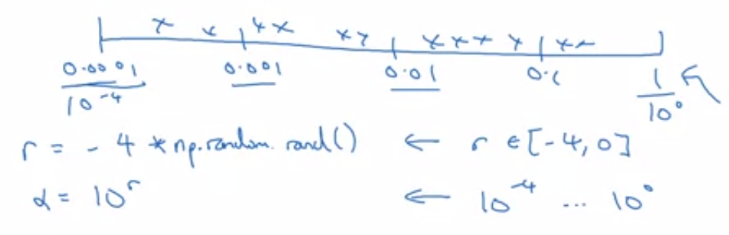 0.0001 0.001 0.01 0.1 1
10⁻⁴ 10⁰
r = -4 * np.random.rand() ← r ∈ [-4, 0]
α = 10ʳ ← 10⁻⁴ ... 10⁰